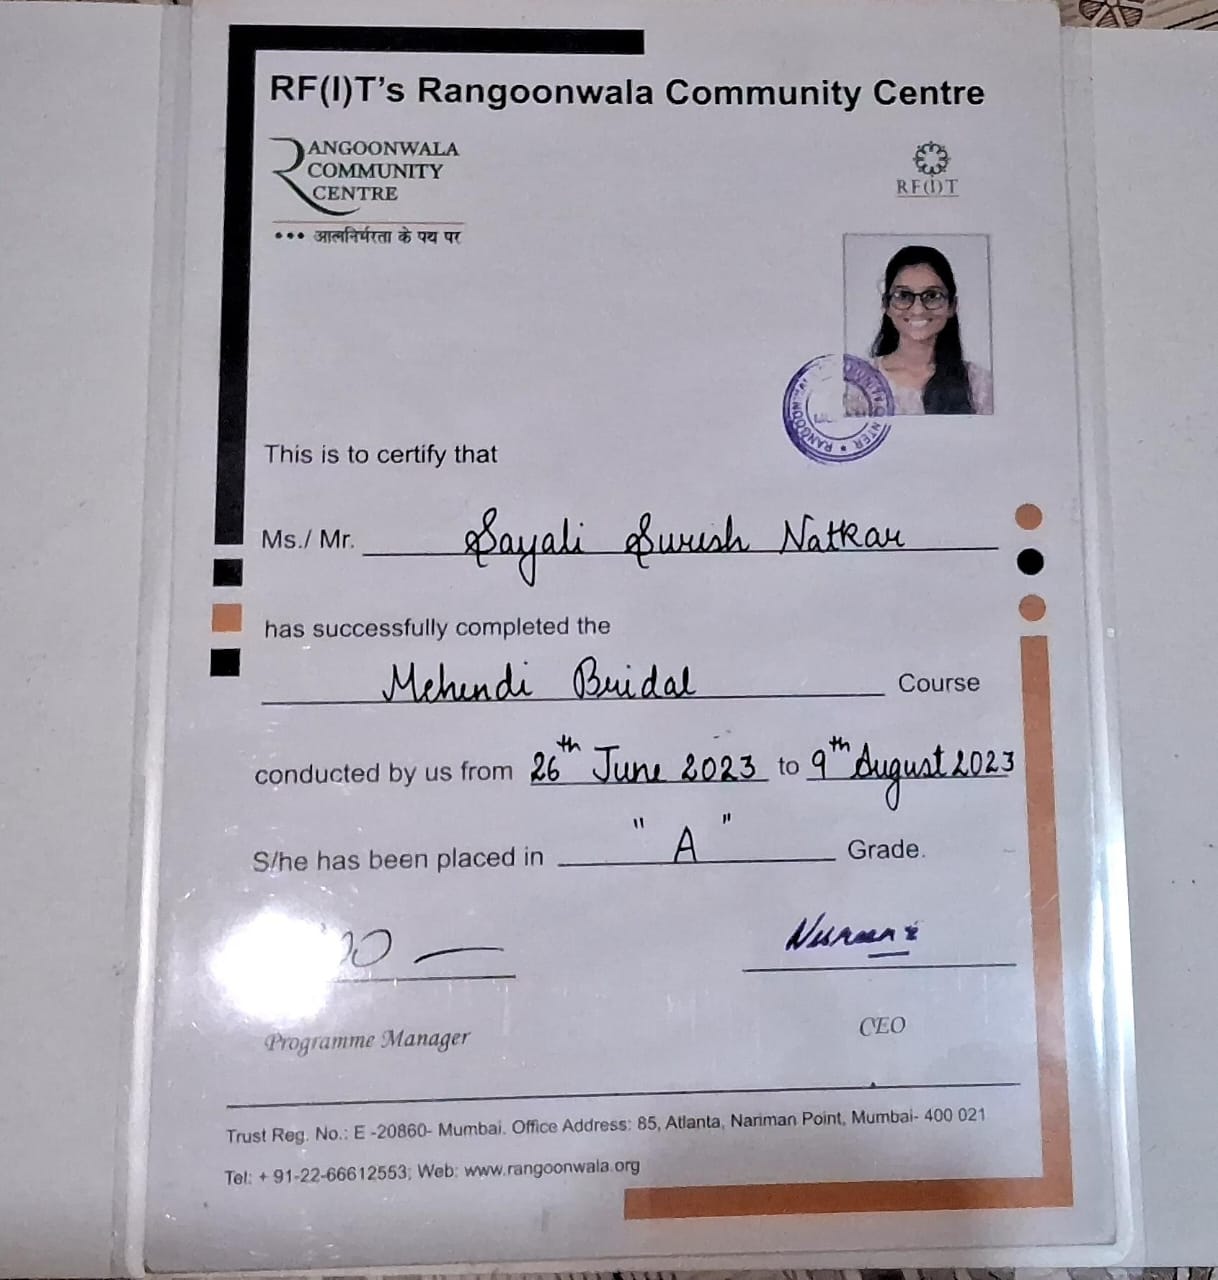 RF(I)T's Rangoonwala Community Centre
RANGOONWALA
COMMUNITY
CENTRE
••• आत्मनिर्भरता के पथ पर
RF(I)T
This is to certify that
Ms./ Mr. Sayali Suresh Natkar
has successfully completed the
Mehendi Bridal Course
conducted by us from 26th June 2023 to 9th August 2023
S/he has been placed in "A" Grade.
Programme Manager
CEO
Trust Reg. No.: E -20860- Mumbai. Office Address: 85, Atlanta, Nariman Point, Mumbai- 400 021
Tel: + 91-22-66612553; Web: www.rangoonwala.org